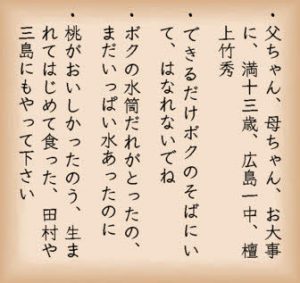 ・父ちゃん、母ちゃん、お大事
に、満十三歳、広島一中、檀
上竹秀
・できるだけボクのそばにい
て、はなれないでね
・ボクの水筒だれがとったの、
まだいっぱい水あったのに
・桃がおいしかったのう、生ま
れてはじめて食った、田村や
三島にもやって下さい